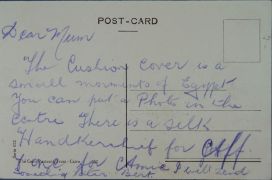 POST-CARD
Dear Mum
The Cushion cover is a
small moments of Egypt
You can put a Photo in the
centre There is a silk
Handkerchief for Cliff.
for Connie I will send
something later. Bert